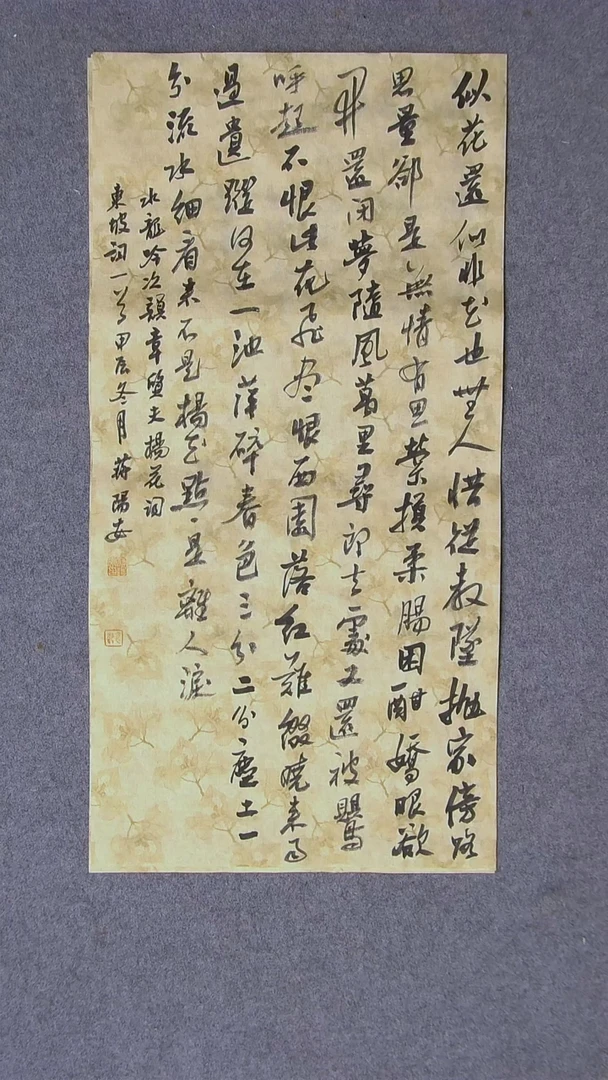 似花還似非花也無人惜從教墜抛家傍路
思量卻是無情有思縈損柔腸困酣嬌眼欲
開還閉夢隨風萬里尋郎去處又還被鶯
呼起不恨此花飛盡恨西園落紅難綴曉來雨
過遺蹤何在一池萍碎春色三分二分塵土一
分流水細看來不是楊花點點是離人淚
水龍吟次韻章質夫楊花詞
東坡詞一首甲辰冬月蔣陽安